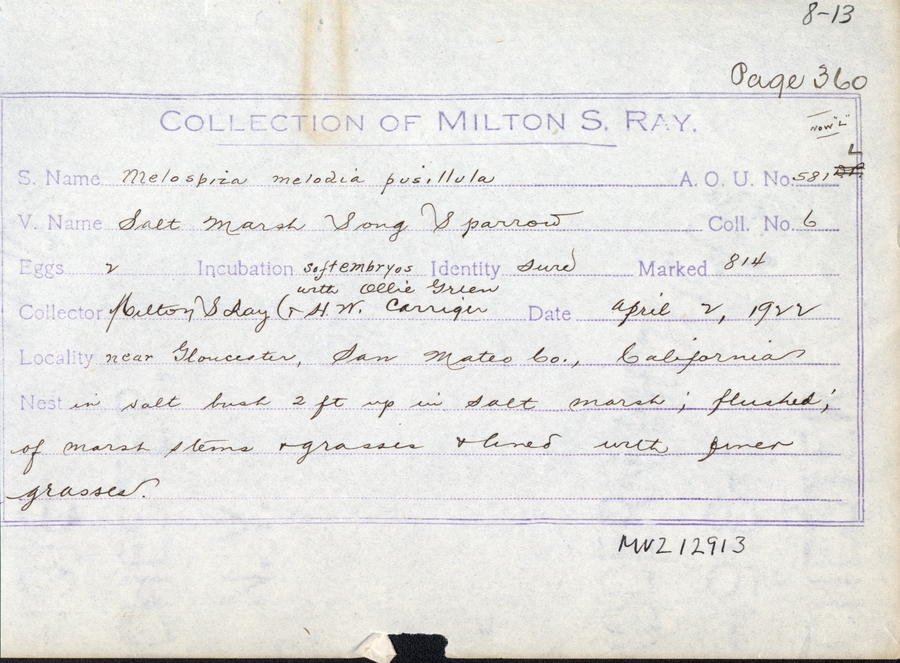 8-13
Page 360
COLLECTION OF MILTON S. RAY.
now "L"
L
S. Name Melospiza melodia pusillula A. O. U. No. 581
V. Name Salt Marsh Song Sparrow Coll. No. 6
Eggs 2 Incubation soft embryos Identity sure Marked 814
with Ollie Green
Collector Milton S Ray (& H. W. Carriger Date April 2, 1922
Locality near Gloucester, San Mateo Co., California
Nest in salt bush 2 ft up in salt marsh; flushed;
of marsh stems & grasses & lined with finer
grasses.
MVZ 12913